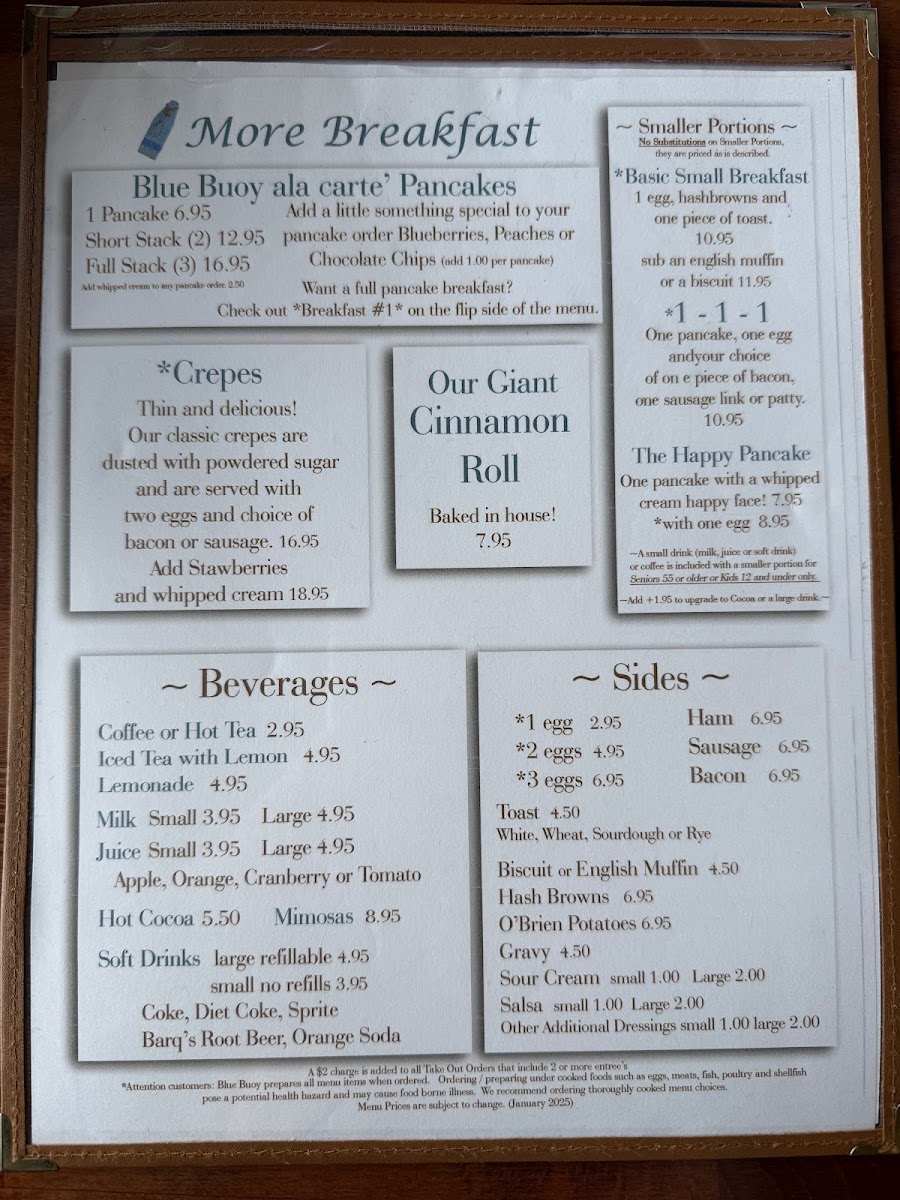 More Breakfast
Blue Buoy ala carte' Pancakes
1 Pancake 6.95
Short Stack (2) 12.95
Full Stack (3) 16.95
Add whipped cream to any pancake order. 2.50
Add a little something special to your
pancake order Blueberries, Peaches or
Chocolate Chips (add 1.00 per pancake)
Want a full pancake breakfast?
Check out *Breakfast #1* on the flip side of the menu.
~ Smaller Portions ~
No Substitutions on Smaller Portions,
they are priced as is described.
*Basic Small Breakfast
1 egg, hashbrowns and
one piece of toast.
10.95
sub an english muffin
or a biscuit 11.95
*1 - 1 - 1
One pancake, one egg
andyour choice
of on e piece of bacon,
one sausage link or patty.
10.95
The Happy Pancake
One pancake with a whipped
cream happy face! 7.95
*with one egg 8.95
~A small drink (milk, juice or soft drink)
or coffee is included with a smaller portion for
Seniors 55 or older or Kids 12 and under only.
~Add +1.95 to upgrade to Cocoa or a large drink.~
*Crepes
Thin and delicious!
Our classic crepes are
dusted with powdered sugar
and are served with
two eggs and choice of
bacon or sausage. 16.95
Add Stawberries
and whipped cream 18.95
Our Giant
Cinnamon
Roll
Baked in house!
7.95
~ Beverages ~
Coffee or Hot Tea 2.95
Iced Tea with Lemon 4.95
Lemonade 4.95
Milk Small 3.95 Large 4.95
Juice Small 3.95 Large 4.95
Apple, Orange, Cranberry or Tomato
Hot Cocoa 5.50 Mimosas 8.95
Soft Drinks large refillable 4.95
small no refills 3.95
Coke, Diet Coke, Sprite
Barq's Root Beer, Orange Soda
~ Sides ~
*1 egg 2.95
*2 eggs 4.95
*3 eggs 6.95
Ham 6.95
Sausage 6.95
Bacon 6.95
Toast 4.50
White, Wheat, Sourdough or Rye
Biscuit or English Muffin 4.50
Hash Browns 6.95
O'Brien Potatoes 6.95
Gravy 4.50
Sour Cream small 1.00 Large 2.00
Salsa small 1.00 Large 2.00
Other Additional Dressings small 1.00 large 2.00
A $2 charge is added to all Take Out Orders that include 2 or more entree's
*Attention customers: Blue Buoy prepares all menu items when ordered. Ordering / preparing under cooked foods such as eggs, meats, fish, poultry and shellfish
pose a potential health hazard and may cause food borne illness. We recommend ordering thoroughly cooked menu choices.
Menu Prices are subject to change. (January 2025)